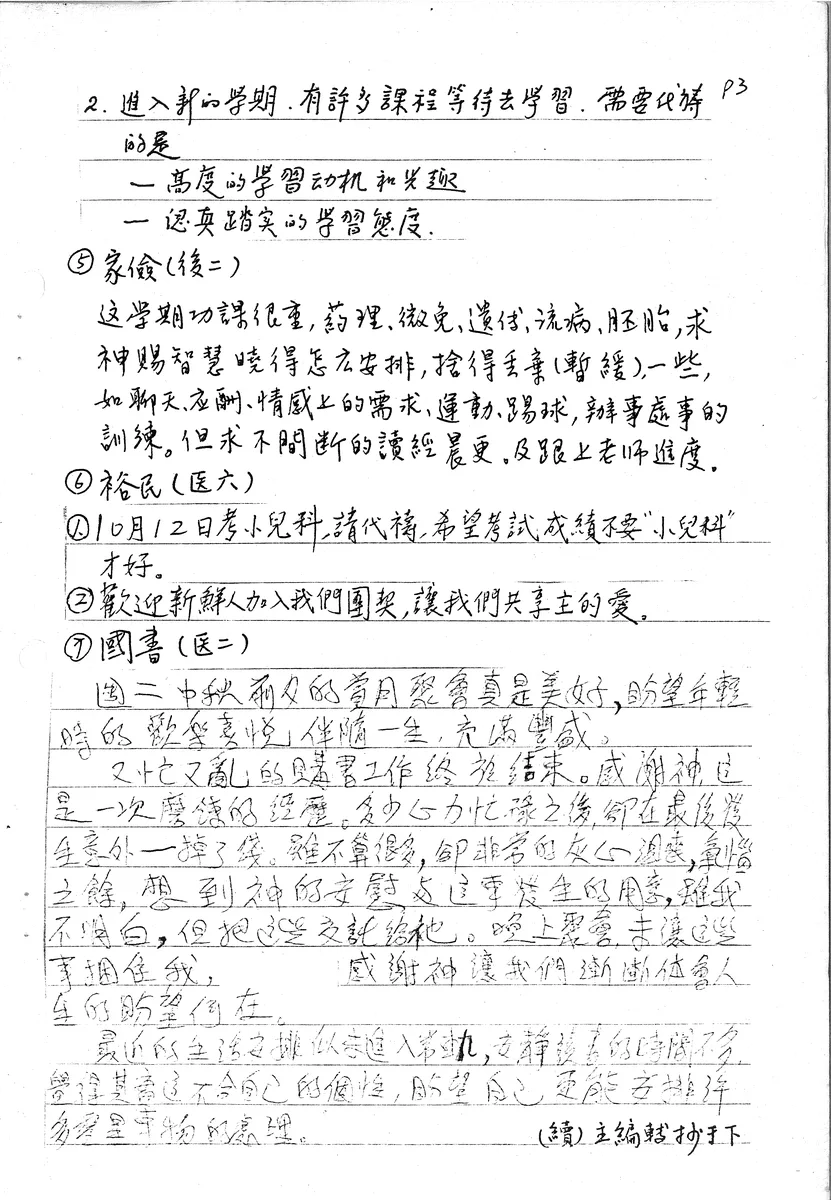 P3
2. 進入新的學期.有許多課程等待去學習.需要代禱
的是
— 高度的學習动机和兴趣
— 認真踏实的學習態度.
⑤ 家儉(後二)
这學期功課很重,药理、微免、遺传、流病、胚胎,求
神賜智慧曉得怎広安排,捨得丢棄(暫緩)一些,
如聊天、应酬、情感上的需求、運動、踢球,辦事處事的
訓練。但求不間断的讀經晨更。及跟上老师進度.
⑥ 裕民(医六)
①10月12日考小兒科,請代禱,希望考試成績不要"小兒科"
才好。
②歡迎新鮮人加入我們團契,讓我們共享主的愛。
⑦ 國書(医二)
週二中秋前夕的賞月聚會真是美好,盼望年輕
時的歡樂喜悅,伴隨一生,充滿豐盛。
又忙又亂的購書工作終於結束。感謝神这
是一次磨鍊的經歷。多少心力忙碌之後,卻在最後發
生意外—掉了錢。雖不算很多,卻非常的灰心沮喪,氣惱
之餘,想到神的安慰与這事發生的用意,雖我
不明白,但把這些交託給祂。晚上聚會,未讓這些
事捆住我, 感謝神讓我們漸漸体會人
生的盼望何在。
最近的生活安排似未進入常軌,安靜讀書的時間不多,
覺得其實這不合自己的個性,盼望自己更能安排許
多 事物的處理。
(續)主編轉抄于下